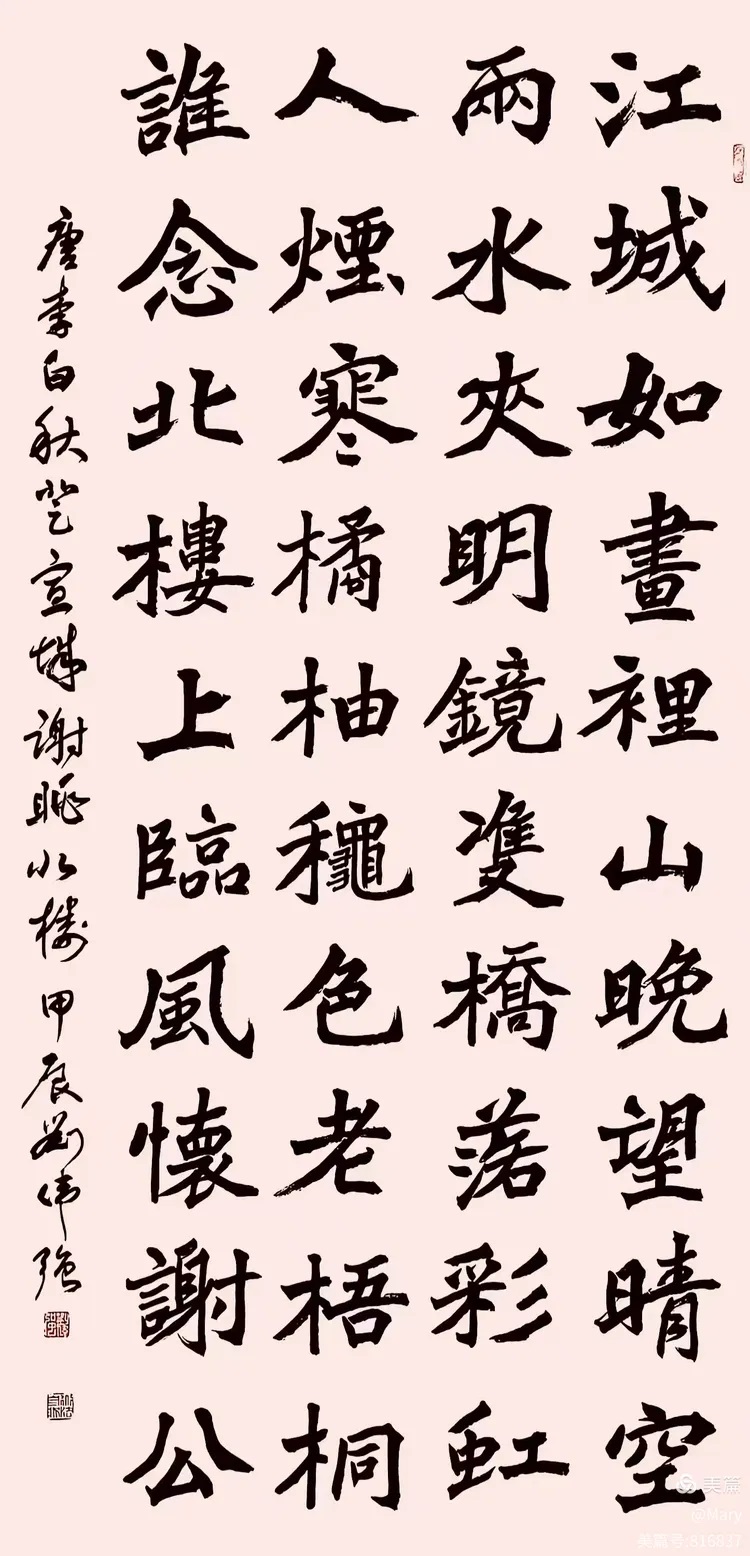 江城如畫裡山晚望晴空
兩水夾明鏡雙橋落彩虹
人煙寒橘柚穐色老梧桐
誰念北樓上臨風懷謝公
唐李白秋登宣城謝眺北樓甲辰劉偉強
美篇
@Mary
美篇号:816837